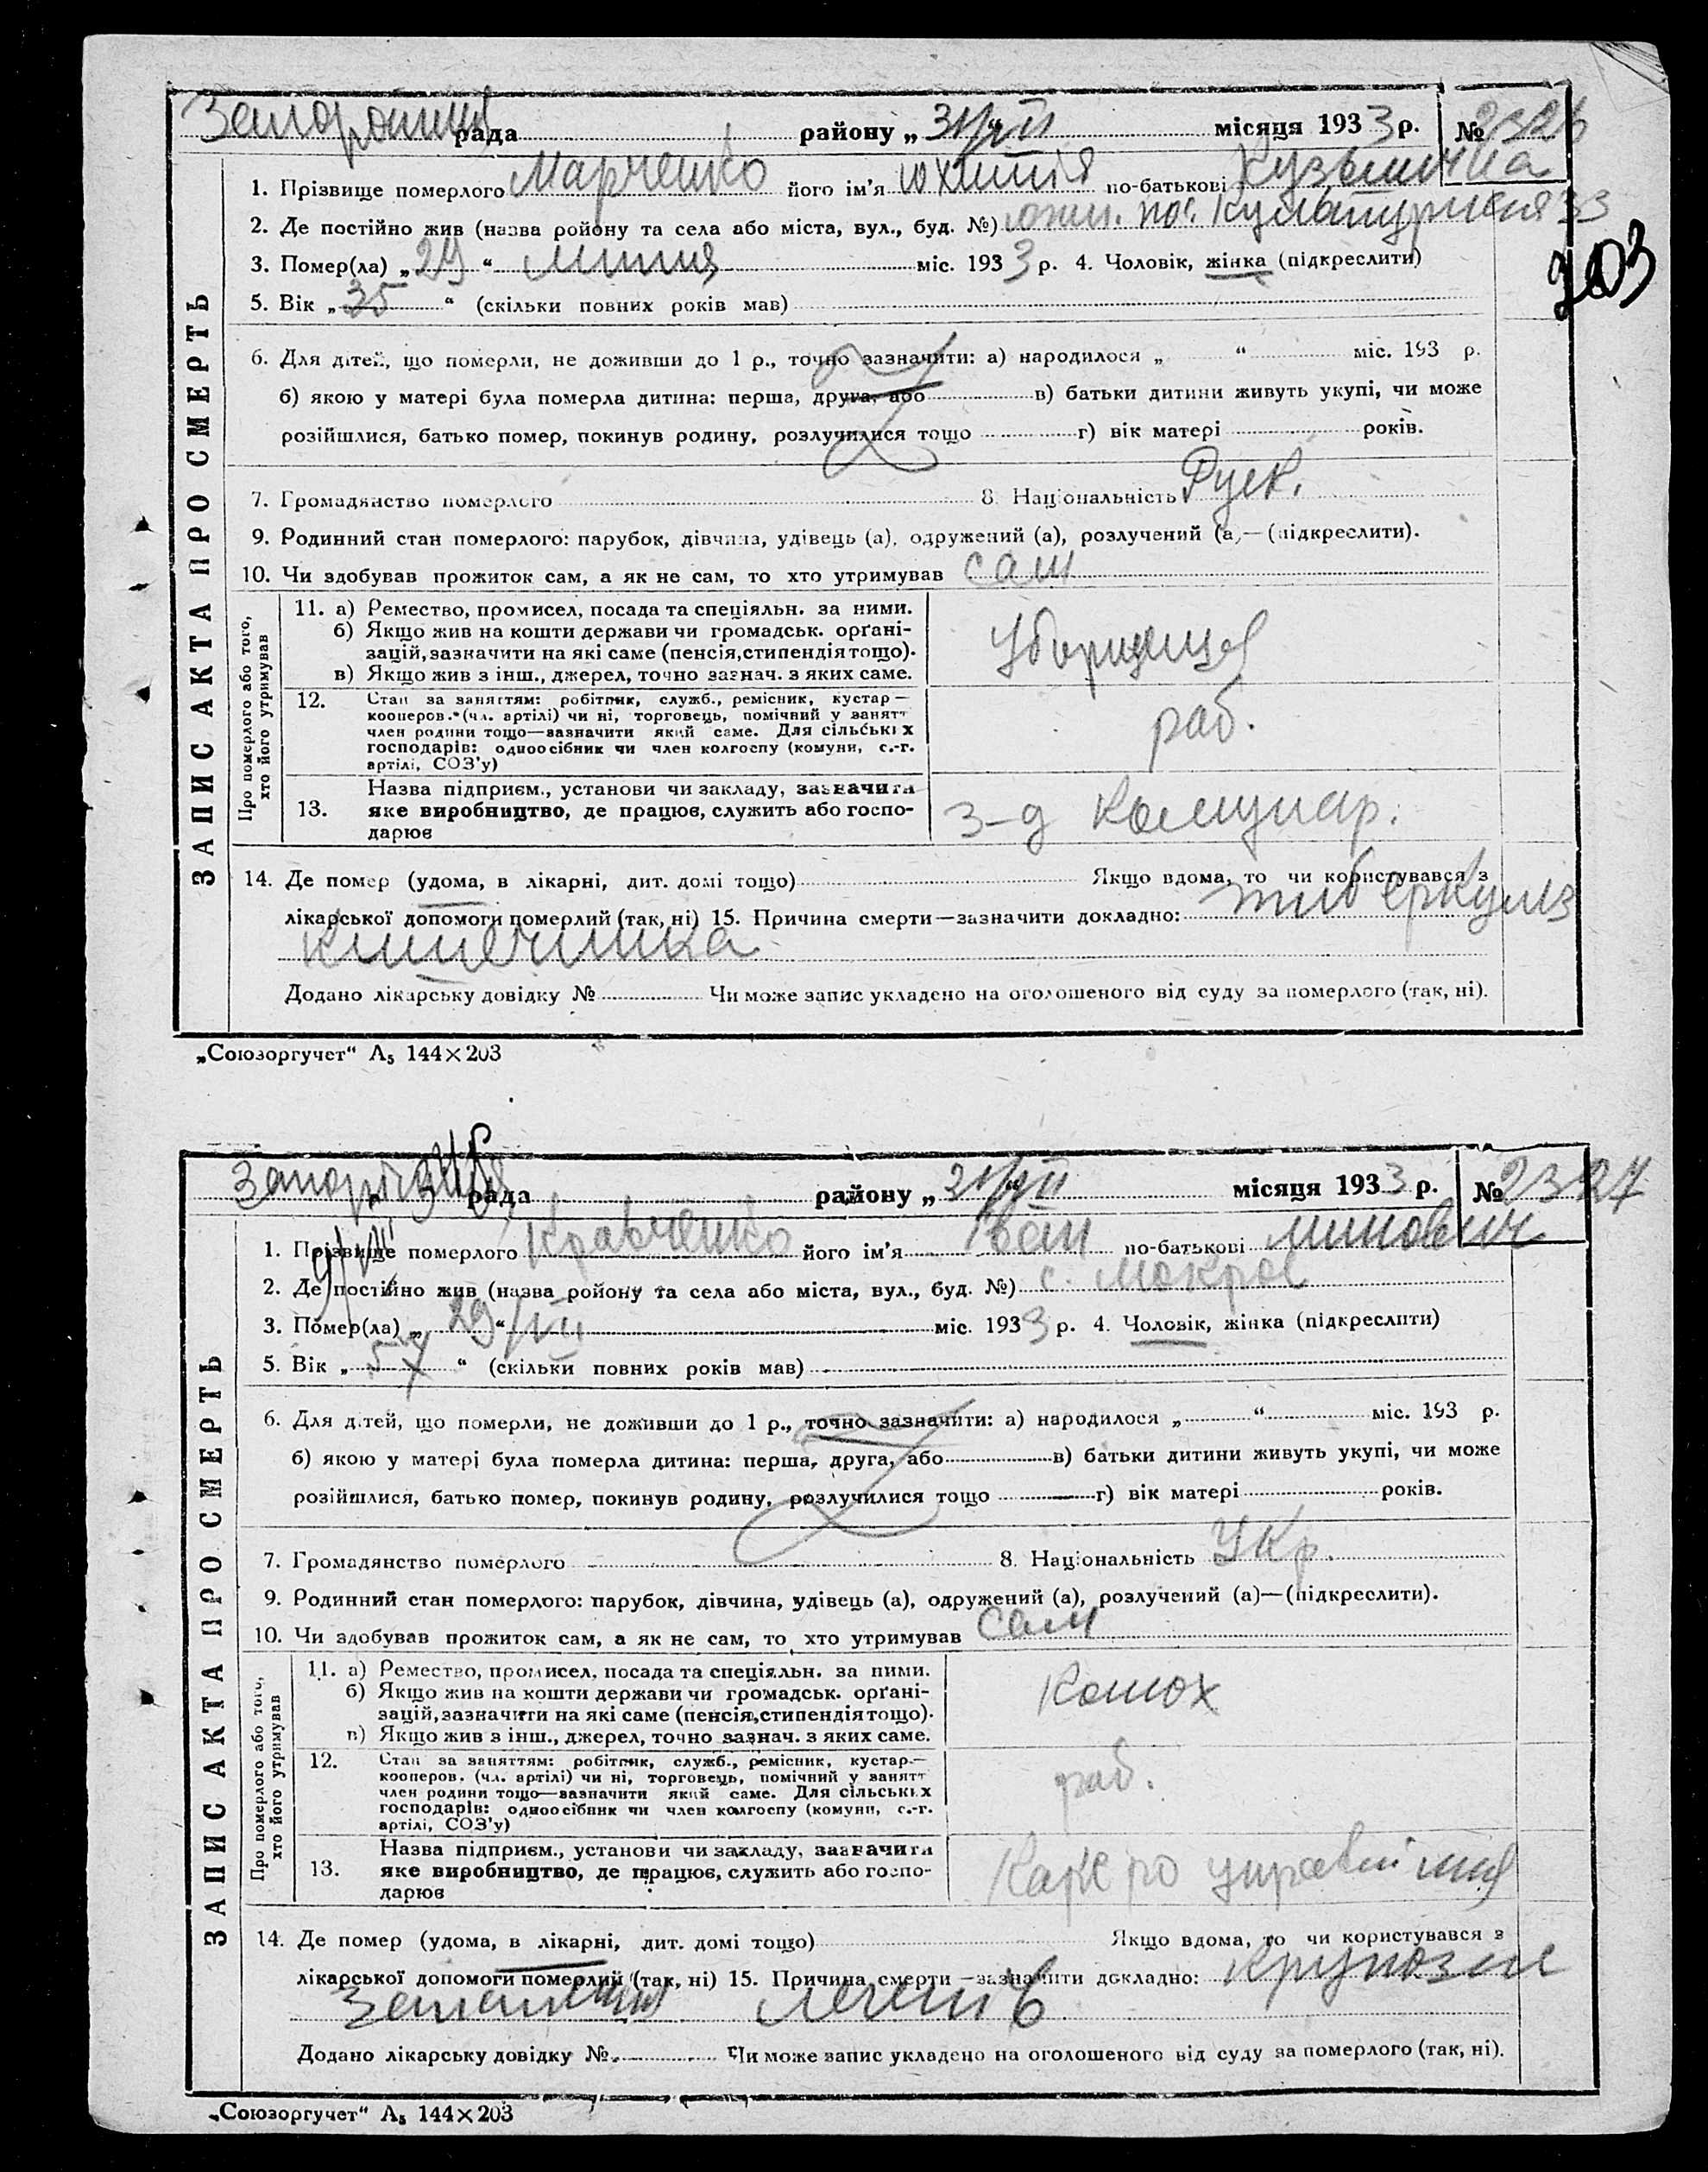 рада району „31/VII“ місяця 1933 р. № 2326
1. Прізвище померлого Марченко його ім’я Юхимія по-батькові Кузьминична
2. Де постійно жив (назва ройону та села або міста, вул., буд. №) пос. Культурная 33
203
3. Помер(ла) „29“ липня міс. 1933 р. 4. Чоловік, жінка (підкреслити)
5. Вік „35“ (скільки повних років мав)
6. Для дітей, що померли, не доживши до 1 р., точно зазначити: а) народилося „ “ міс. 193 р.
б) якою у матері була померла дитина: перша, друга, або в) батьки дитини живуть укупі, чи може
розійшлися, батько помер, покинув родину, розлучилися тощо г) вік матері років.
7. Громадянство померлого 8. Національність Руск.
9. Родинний стан померлого: парубок, дівчина, удівець (а), одружений (а), розлучений (а)—(підкреслити).
10. Чи здобував прожиток сам, а як не сам, то хто утримував сам
ЗАПИС АКТА ПРО СМЕРТЬ
Про померлого або того, хто його утримував
11. а) Ремество, промисел, посада та спеціяльн. за ними.
б) Якщо жив на кошти держави чи громадськ. орґані-
зацій, зазначити на які саме (пенсія, стипендія тощо).
в) Якщо жив з інш., джерел, точно зазнач. з яких саме.
Уборщица
12. Стан за заняттям: робітник, служб., ремісник, кустар—
кооперов. (чл. артілі) чи ні, торговець, помічний у занятт
член родини тощо—зазначити який саме. Для сільських
господарів: одноосібник чи член колгоспу (комуни, с.-г.
артілі, СОЗ’у)
раб.
Назва підприєм., установи чи закладу, зазначити
13. яке виробництво, де працює, служить або госпо-
дарює
з-д Комунар.
14. Де помер (удома, в лікарні, дит. домі тощо) Якщо вдома, то чи користувався з
лікарської допомоги померлий (так, ні) 15. Причина смерти—зазначити докладно: туберкульз
кишечника
Додано лікарську довідку № Чи може запис укладено на оголошеного від суду за померлого (так, ні).
„Союзоргучет“ А₅ 144×203
рада району „31/VII“ місяця 1933 р. № 2327
1. Прізвище померлого Кравченко його ім’я Іван по-батькові
2. Де постійно жив (назва ройону та села або міста, вул., буд. №) с. Мокрое
3. Помер(ла) „29“/VII міс. 1933 р. 4. Чоловік, жінка (підкреслити)
5. Вік „57“ (скільки повних років мав)
6. Для дітей, що померли, не доживши до 1 р., точно зазначити: а) народилося „ “ міс. 193 р.
б) якою у матері була померла дитина: перша, друга, або в) батьки дитини живуть укупі, чи може
розійшлися, батько помер, покинув родину, розлучилися тощо г) вік матері років.
7. Громадянство померлого 8. Національність Укр.
9. Родинний стан померлого: парубок, дівчина, удівець (а), одружений (а), розлучений (а)—(підкреслити).
10. Чи здобував прожиток сам, а як не сам, то хто утримував сам
ЗАПИС АКТА ПРО СМЕРТЬ
Про померлого або того, хто його утримував
11. а) Ремество, промисел, посада та спеціяльн. за ними.
б) Якщо жив на кошти держави чи громадськ. орґані-
зацій, зазначити на які саме (пенсія, стипендія тощо).
в) Якщо жив з інш., джерел, точно зазнач. з яких саме.
Конюх
12. Стан за заняттям: робітник, служб., ремісник, кустар.—
кооперов. (чл. артілі) чи ні, торговець, помічний у занятт
член родини тощо—зазначити який саме. Для сільських
господарів: одноосібник чи член колгоспу (комуни, с.-г.
артілі, СОЗ’у)
раб.
Назва підприєм., установи чи закладу, зазначити
13. яке виробництво, де працює, служить або госпо-
дарює
14. Де помер (удома, в лікарні, дит. домі тощо) Якщо вдома, то чи користувався з
лікарської допомоги померлий (так, ні) 15. Причина смерти—зазначити докладно: крупозне
запалення легенів
Додано лікарську довідку № Чи може запис укладено на оголошеного від суду за померлого (так, ні).
„Союзоргучет“ А₅ 144×203